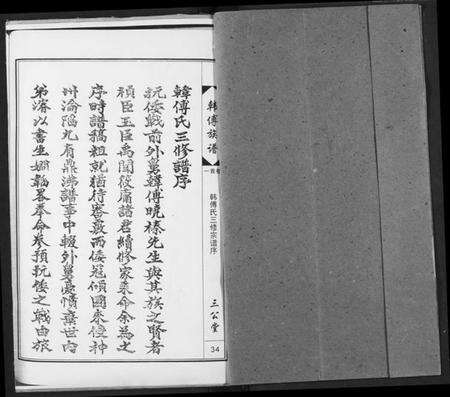 韓傅氏三修譜序
抗倭戰前外舅韓傅曉榛先生與其族之賢者
禎臣玉臣禹聞筱庸諸君續修家乘命余為之
序時譜稿粗就猶待審覈而倭寇傾國來侵神
州淪陷九有鼎沸譜事中輟外舅憂憤棄世內
弟濬以書生嫺韜畧奉命參預抗倭之戰由旅
韓傅族譜
卷首一
韩傅氏三修宗谱序
三公堂
34